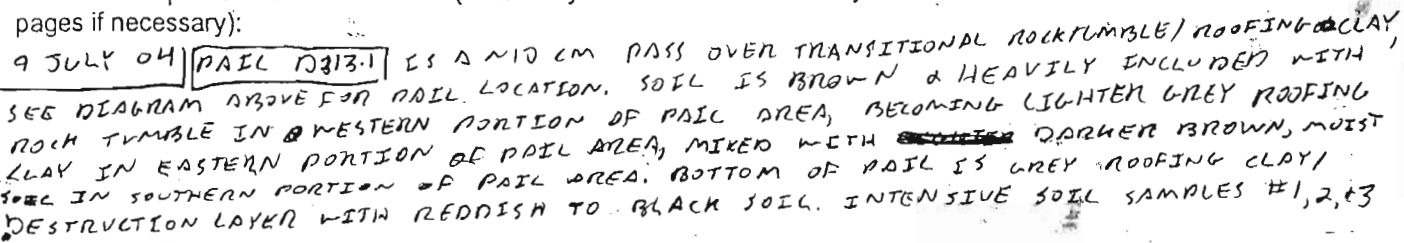 pages if necessary):
9 JULY 04 PAIL D313.1 IS A ~10 CM PASS OVER TRANSITIONAL ROCKTUMBLE/ROOFING CLAY,
SEE DIAGRAM ABOVE FOR PAIL LOCATION. SOIL IS BROWN & HEAVILY INCLUDED WITH
ROCK TUMBLE IN WESTERN PORTION OF PAIL AREA, BECOMING LIGHTER GREY ROOFING
CLAY IN EASTERN PORTION OF PAIL AREA, MIXED WITH DARKER BROWN, MOIST
SOIL IN SOUTHERN PORTION OF PAIL AREA. BOTTOM OF PAIL IS GREY ROOFING CLAY/
DESTRUCTION LAYER WITH REDDISH TO BLACK SOIL. INTENSIVE SOIL SAMPLES #1,2,+3